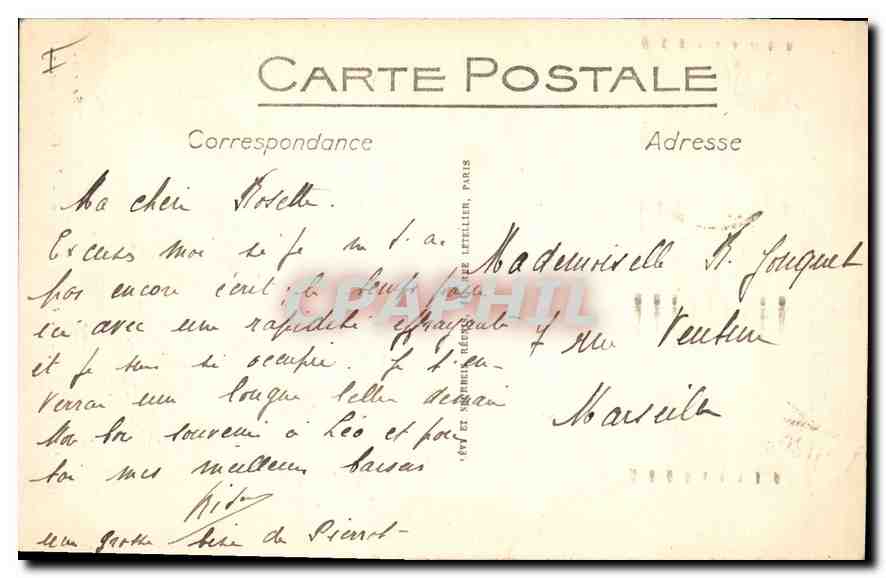 I
CARTE POSTALE
Correspondance
Adresse
Ma chéri Rosette.
Excuses moi si je ne t'ai
pas encore écrit ; le temps passe
ici avec une rapidité effrayante
et je suis si occupée. Je t'en-
verrai une longue lettre demain
Mon bon souvenir à Léo et pour
toi mes meilleurs baisers
une grosse bise de Pierrot
LÉVY ET NEURDEIN RÉUNIS, RUE LETELLIER, PARIS
Mademoiselle R. Jouquet
7 rue Venture
Marseille
CPAPHIL